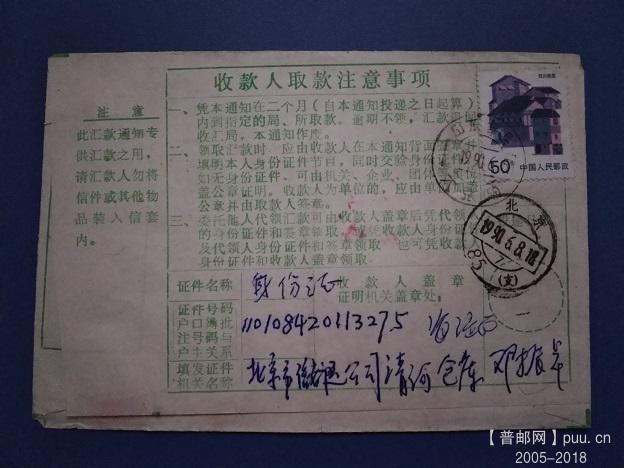 收款人取款注意事项
注意
此汇款通知专
供汇款之用，
请汇款人勿将
信件或其他物
品装入信套
内。
一、凭本通知在二个月（自本通知投递之日起算）
内到指定的局、所取款。逾期不领，汇款退回
收汇局，本通知作废。
二、领取汇款时，应由收款人在本通知背面
填明本人身份证件节目，同时交验身份证件
如无身份证件，可由机关、企业、团体
盖公章证明。收款人为单位的，应由单位加盖
公章并由取款人签章。
三、委托他人代领汇款可由收款人盖章后凭代领
的身份证件和签章领取 或凭收款人身份证件
及代领人身份证件和签章领取 也可凭收款人
身份证件和收款人盖章领取
证件名称 身份证 收款人盖章
证明机关盖章处：
证件号码
户口簿批
注号码与
户主关系
填发证件
机关名称
北京市 公司清河仓库 邓振
四川民居
50分 中国人民邮政
北京
1990.6.8.18
85(支)
【普邮网】puu.cn
2005-2018